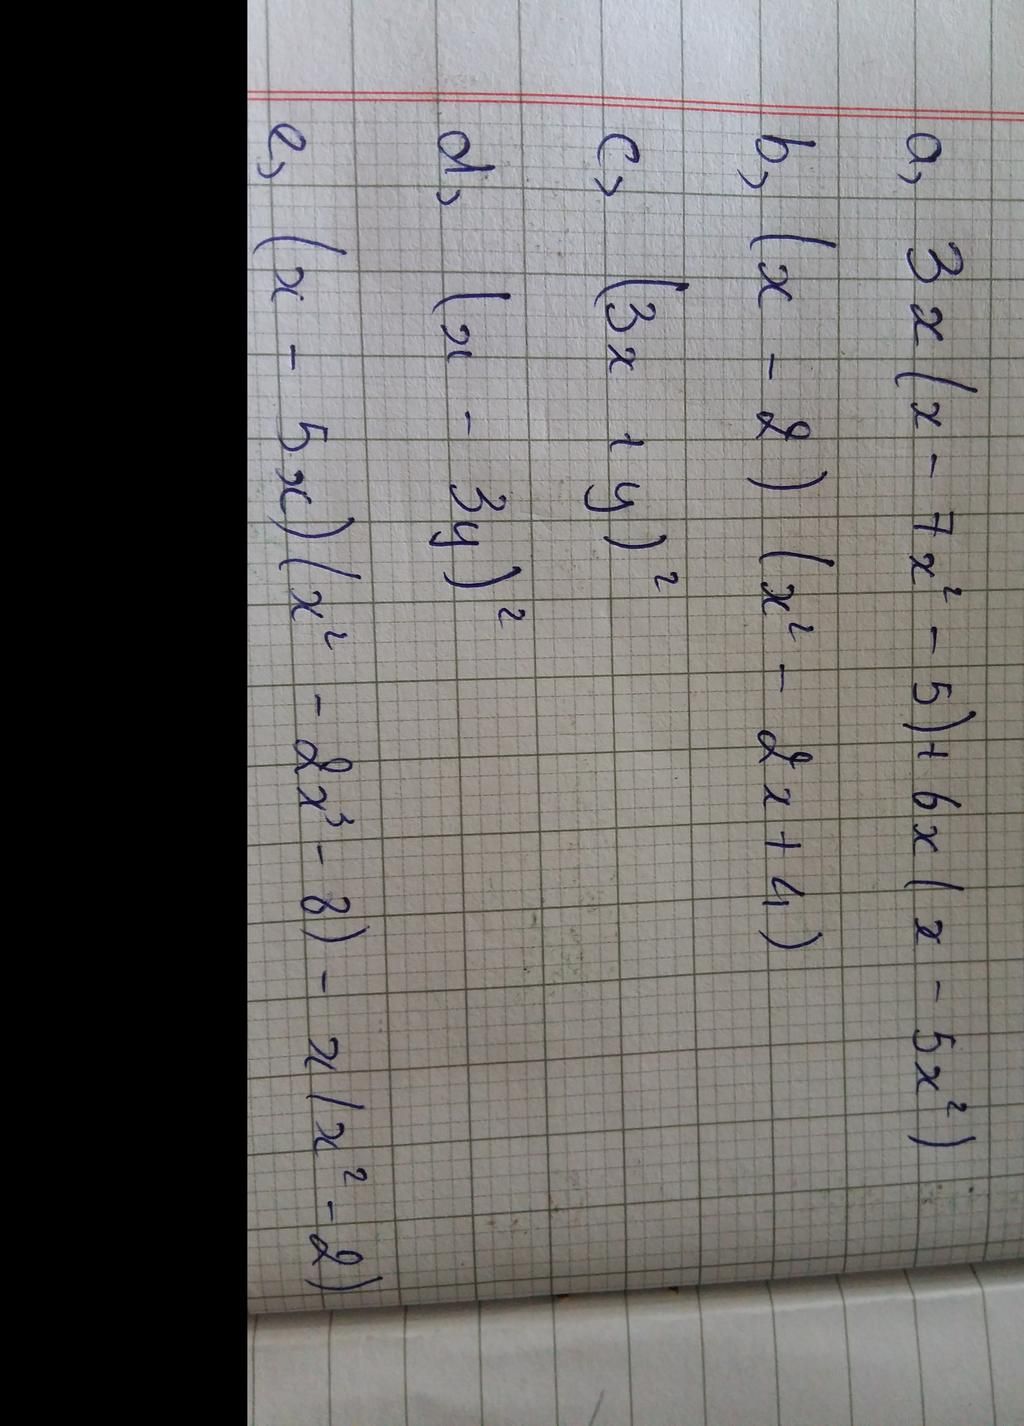 a, 3x(x - 7x² - 5) + 6x(x - 5x²)
b, (x - 2) (x² - 2x + 4)
c, (3x + y)²
d, (x - 3y)²
e, (x - 5x)(x² - 2x³ - 8) - x(x² - 2)